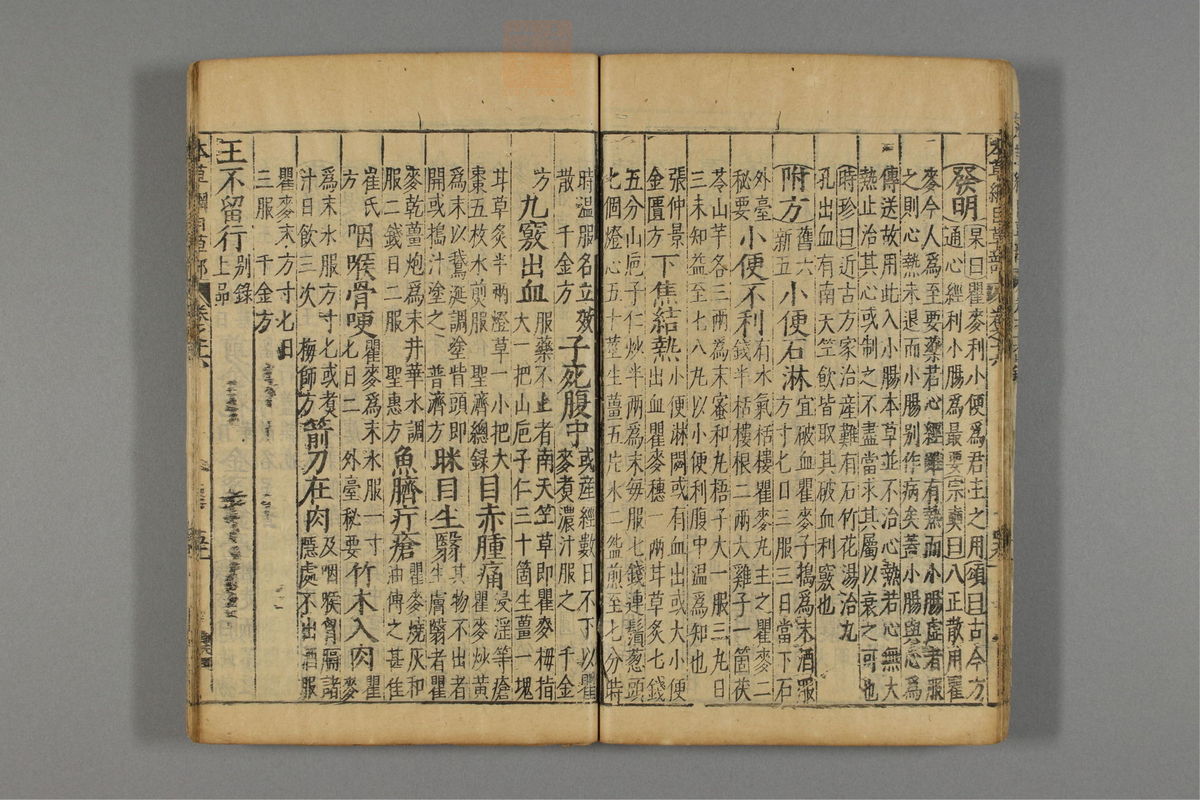 本草綱目草部
發明 杲曰瞿麥利小便爲君主之用頌曰古今方
通心經利小腸爲最要宗奭曰八正散用瞿
麥今人爲至要藥若心經雖有熱而小腸虛者服
之則心熱未退而小腸别作病矣葢小腸與心爲
傳送故用此入小腸本草並不治心熱若心無大
熱止治其心或制之不盡當求其屬以衰之可也
時珍曰近古方家治産難有石竹花湯治九
孔出血有南天竺飲皆取其破血利竅也
附方 舊六新五 小便石淋 宜破血瞿麥子搗爲末酒服方寸七日三服三日當下石
外臺秘要 小便不利 有水氣栝樓瞿麥丸主之瞿麥二錢半栝樓根二兩大雞子一箇茯
苓山芋各三兩爲末蜜和丸梧子大一服三丸日
三未知益至七八丸以小便利腹中温爲知也
張仲景金匱方 下焦結熱 小便淋閟或有血出或大小便出血瞿麥穗一兩甘草炙七錢
五分山巵子仁炒半兩爲末每服七錢連鬚葱頭
七個燈心五十莖生薑五片水二盌煎至七分時
時温服名立效散 千金方 子死腹中 或産經數日不下以瞿麥煮濃汁服之 千金
方 九竅出血 服藥不止者南天竺草即瞿麥拇指大一把山巵子仁三十箇生薑一塊
甘草炙半兩燈草一小把大棗五枚水煎服 聖濟總録 目赤腫痛 浸淫等瘡瞿麥炒黃
爲末以鵞涎調塗眥頭即開或搗汁塗之 普濟方 眯目生翳 其物不出者生膚翳者瞿
麥乾薑炮爲末井華水調服二錢日二服 聖惠方 魚臍疔瘡 瞿麥燒灰和油傅之甚佳
崔氏方 咽喉骨哽 瞿麥爲末水服一寸七日二 外臺秘要 竹木入肉 瞿麥
爲末水服方寸七或煮汁日飲三次 梅師方 箭刀在肉 及咽喉胷膈諸隱處不出酒服
瞿麥末方寸七日
三服 千金方
王不留行 别録上品
本草綱目草部 卷之十六